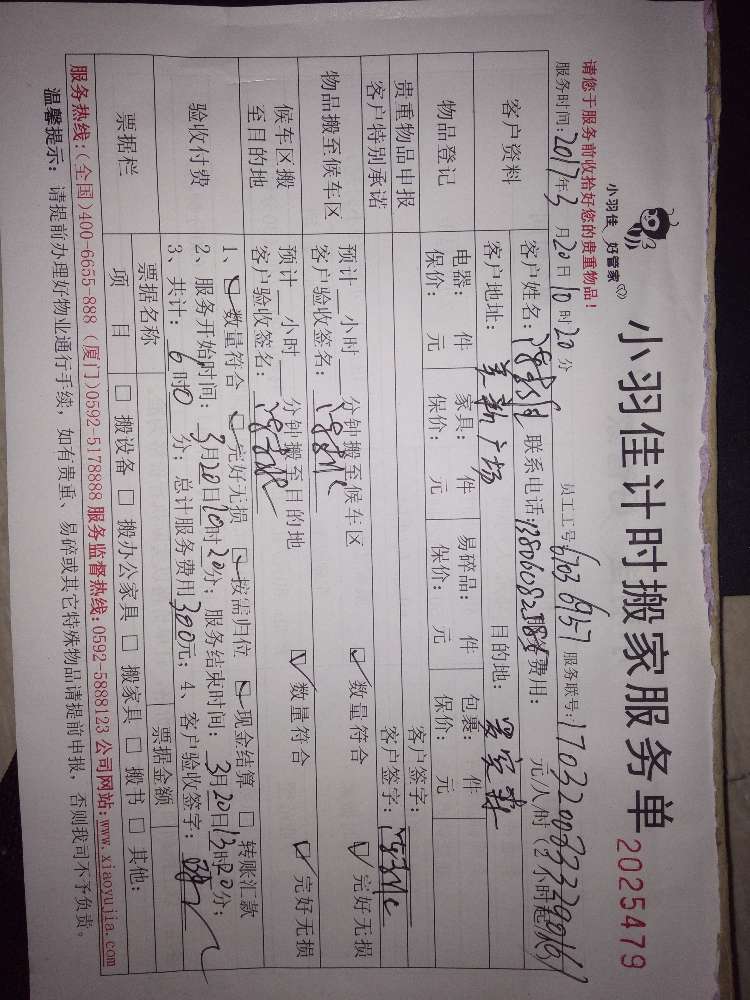 请您于服务前收拾好您的贵重物品!
小羽佳 好管家
小羽佳计时搬家服务单
2025479
服务时间:2017年3月20日10时20分 员工工号:6703 6957 服务联号:
客户资料
客户姓名: 联系电话: 服务费用: 元/人/时(2小时起收)
客户地址: 美新广场 目的地:
物品登记
电器: 件 家具: 件 易碎品: 件 包裹: 件
保价: 元 保价: 元 保价: 元 保价: 元
贵重物品申报 客户签字:
客户特别承诺 客户签字:
物品搬至候车区
预计 小时 分钟搬至候车区 ☑ 数量符合 ☑ 完好无损
客户验收签名:
候车区搬至目的地
预计 小时 分钟搬至目的地 ☑ 数量符合 ☑ 完好无损
客户验收签名:
验收付费
1、☑ 数量符合 ☑ 完好无损 ☑ 按需归位 ☑ 现金结算 □ 转账汇款
2、服务开始时间: 3月20日10时20分; 服务结束时间: 3月20日13时20分;
3、共计: 6时0分; 总计服务费用300元; 4、客户验收签字:
票据栏
票据名称 票据金额
项目 □ 搬设备 □ 搬办公家具 □ 搬家具 □ 搬书 □ 其他:
服务热线:(全国)400-6655-888 (厦门)0592-5178888 服务监督热线:0592-5888123 公司网站:www.xiaoyujia.com
温馨提示: 请提前办理好物业通行手续, 如有贵重、易碎或其它特殊物品请提前申报, 否则我司不予负责。